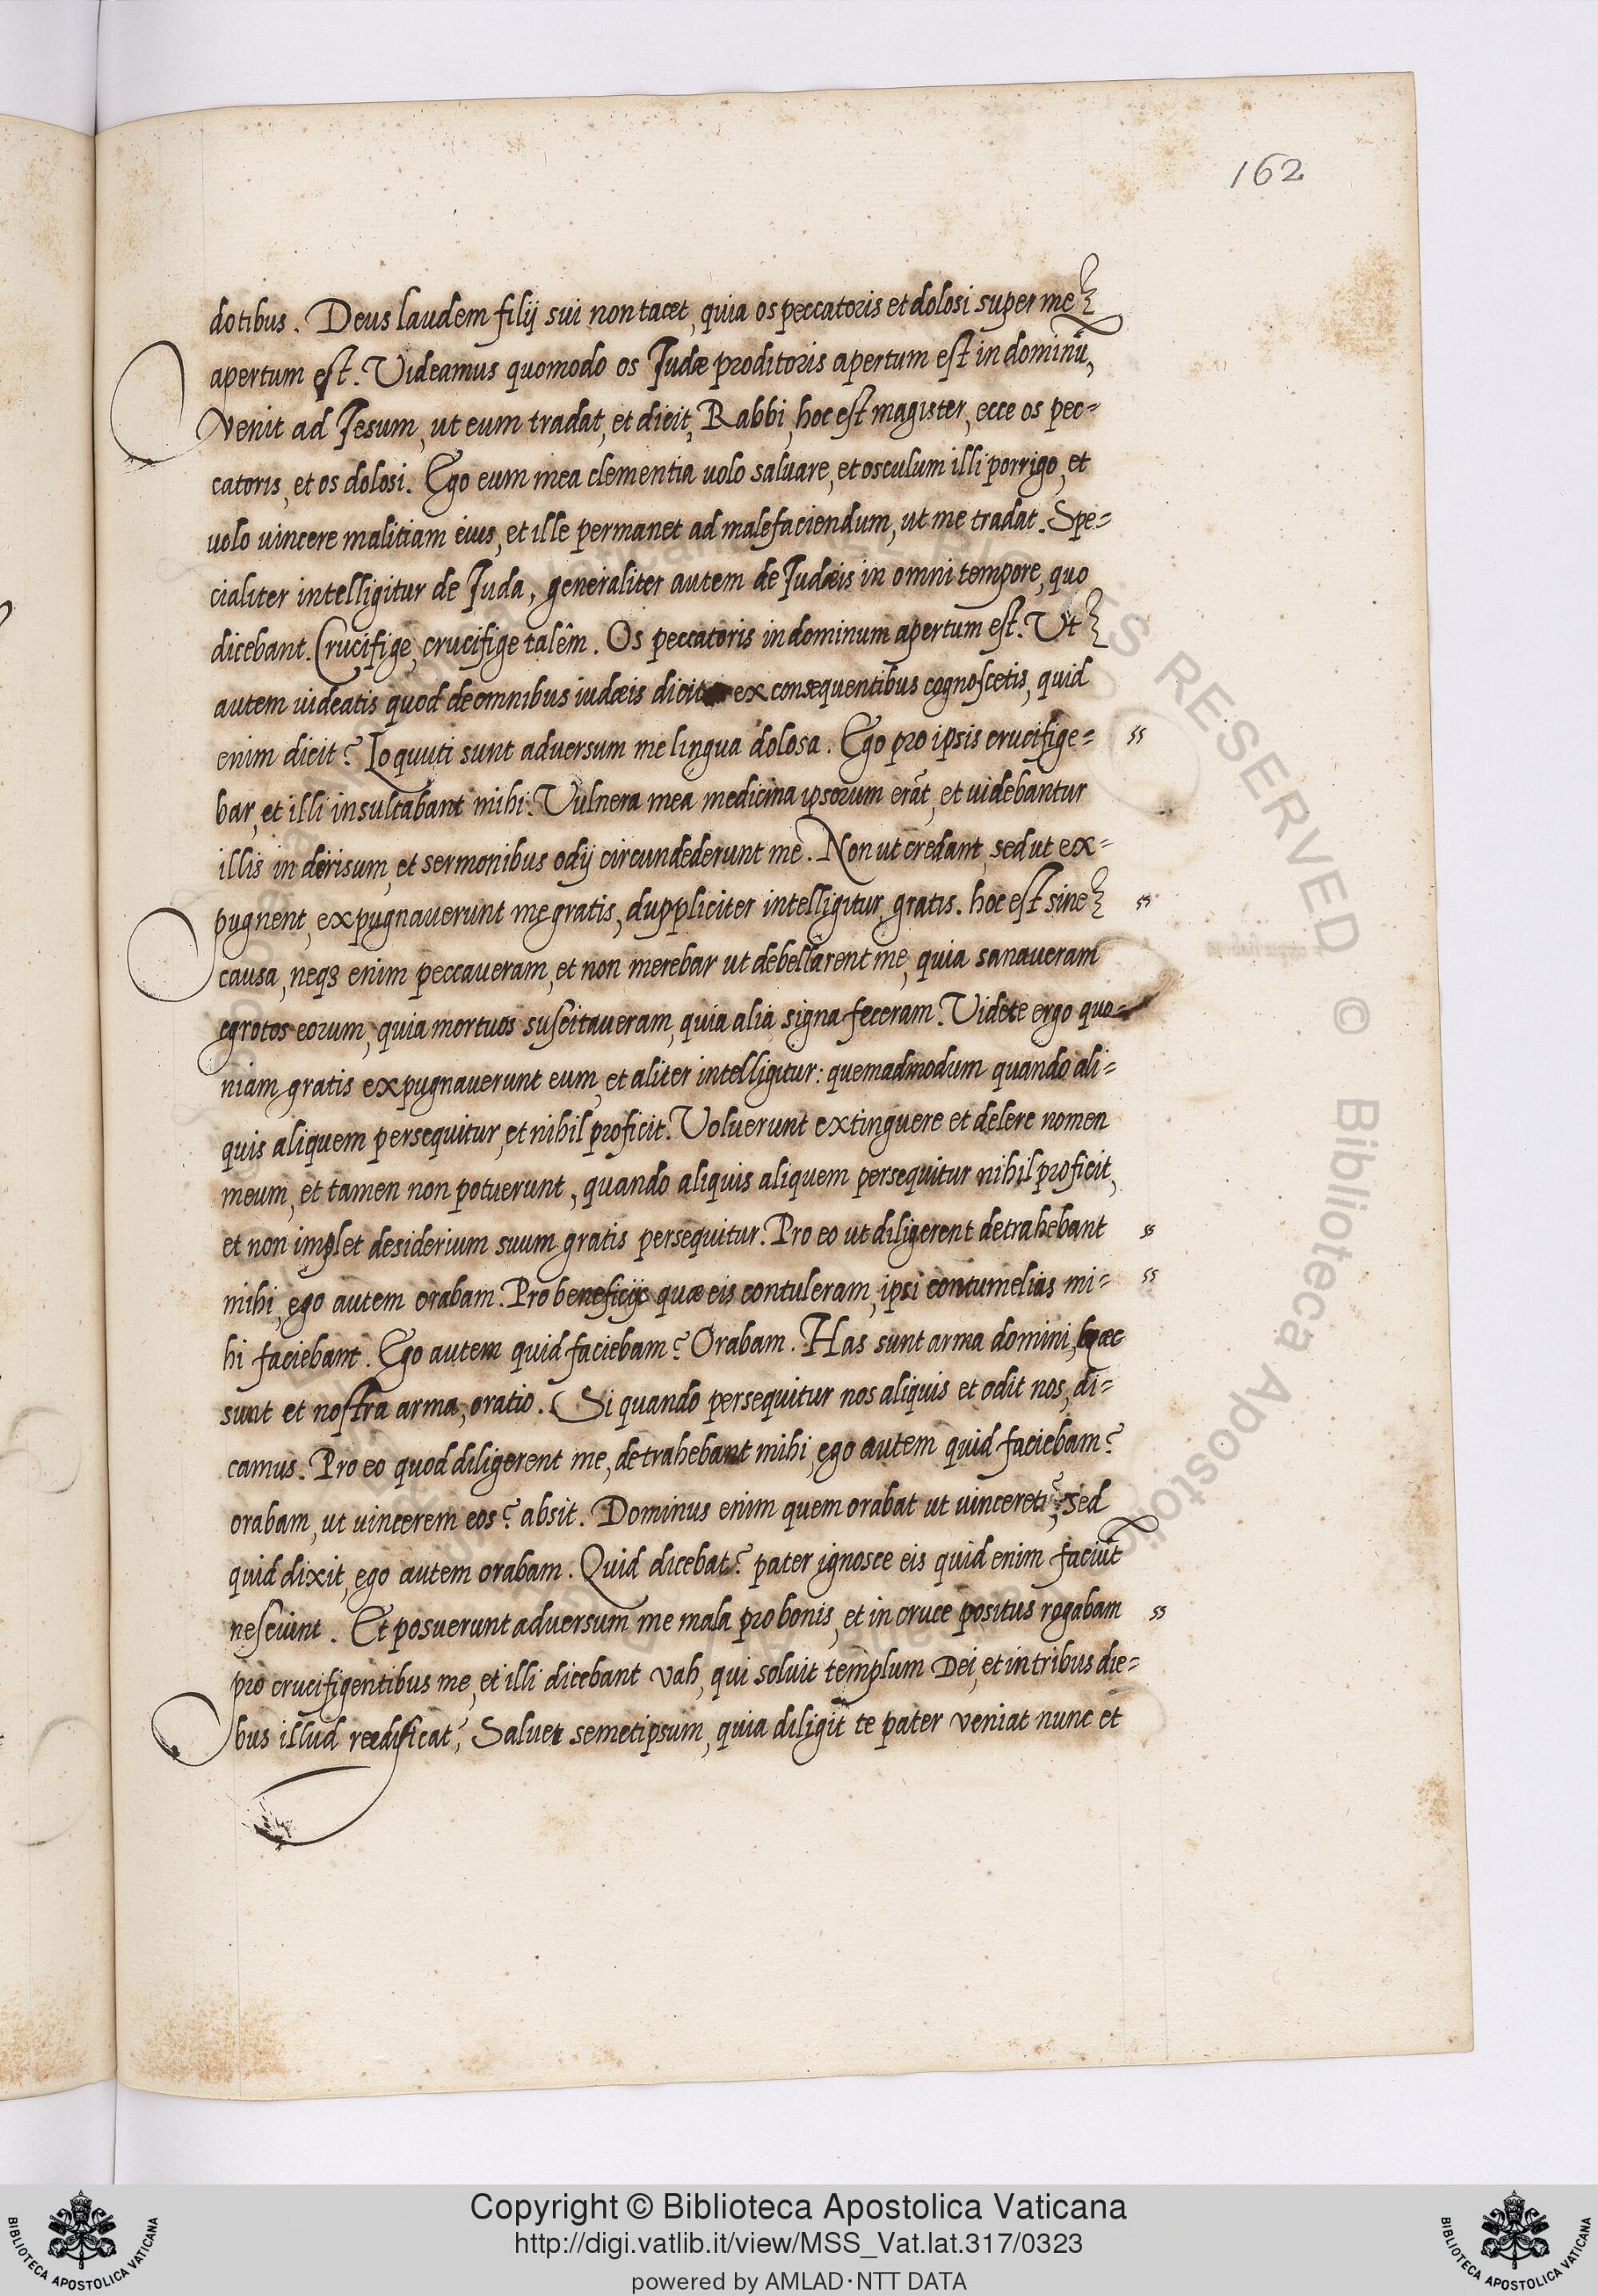 162
dotibus. Deus laudem filij sui non tacet, quia os peccatoris et dolosi super me
apertum est. Videamus quomodo os Judæ proditoris apertum est in dominũ,
venit ad Jesum, ut eum tradat, et dicit, Rabbi, hoc est magister, ecce os pec=
catoris, et os dolosi. Ego eum mea clementia uolo saluare, et osculum illi porrigo, et
uolo uincere malitiam eius, et ille permanet ad malefaciendum, ut me tradat. Spe=
cialiter intelligitur de Juda, generaliter autem de Judæis in omni tempore, quo
dicebant. Crucifige, crucifige talẽm. Os peccatoris in dominum apertum est. Ut
autem uideatis quod de omnibus iudæis dicit ex consequentibus cognoscetis, quid
enim dicit? Loquuti sunt aduersum me lingua dolosa. Ego pro ipsis crucifige= ss
bar, et illi insultabant mihi. Vulnera mea medicina ipsorum erãt, et uidebantur
illis in derisum, et sermonibus odij circundederunt me. Non ut credant, sed ut ex=
pugnent, expugnauerunt me gratis, duppliciter intelligitur, gratis. hoc est sine ss
causa, neqȝ enim peccaueram, et non merebar ut debellarent me, quia sanaueram
egrotos eorum, quia mortuos suscitaueram, quia alia signa feceram. Videte ergo quo=
niam gratis expugnauerunt eum, et aliter intelligitur: quemadmodum quando ali=
quis aliquem persequitur, et nihil proficit. Voluerunt extinguere et delere nomen
meum, et tamen non potuerunt, quando aliquis aliquem persequitur nihil proficit,
et non implet desiderium suum gratis persequitur. Pro eo ut diligerent detrahebant ss
mihi, ego autem orabam. Pro beneficijs quæ eis contuleram, ipsi contumelias mi= ss
hi faciebant. Ego autem quid faciebam? Orabam. Has sunt arma domini, hæc
sunt et nostra arma, oratio. Si quando persequitur nos aliquis et odit nos, di=
camus. Pro eo quod diligerent me, detrahebant mihi, ego autem quid faciebam?
orabam, ut uincerem eos? absit. Dominus enim quem orabat ut uinceret? sed
quid dixit, ego autem orabam. Quid dicebat? pater ignosce eis quid enim faciũt
nesciunt. Et posuerunt aduersum me mala pro bonis, et in cruce positus rogabam ss
pro crucifigentibus me, et illi dicebant vah, qui soluit templum Dei, et in tribus die=
bus illud reedificat, Saluet semetipsum, quia diligit te pater veniat nunc et
Copyright © Biblioteca Apostolica Vaticana
http://digi.vatlib.it/view/MSS_Vat.lat.317/0323
powered by AMLAD·NTT DATA
BIBLIOTECA APOSTOLICA VATICANA
BIBLIOTECA APOSTOLICA VATICANA